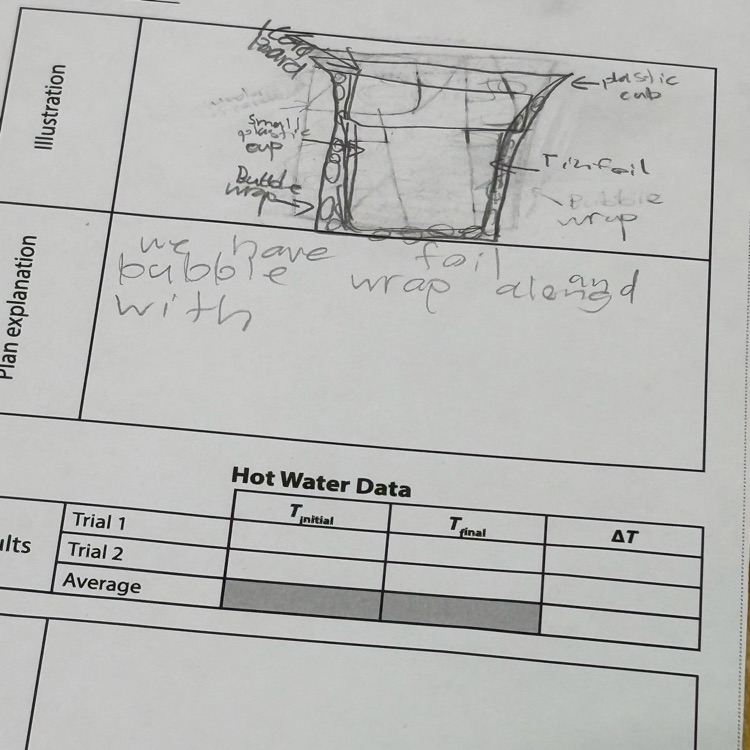 Illustration
card
board
plastic
cub
small
plastic
cup
Tinfoil
Bubble
wrap
Bubble
wrap
Plan explanation
we have foil and
bubble wrap along
with
Hot Water Data
Tinitial
Tfinal
ΔT
Trial 1
Trial 2
Average
ults